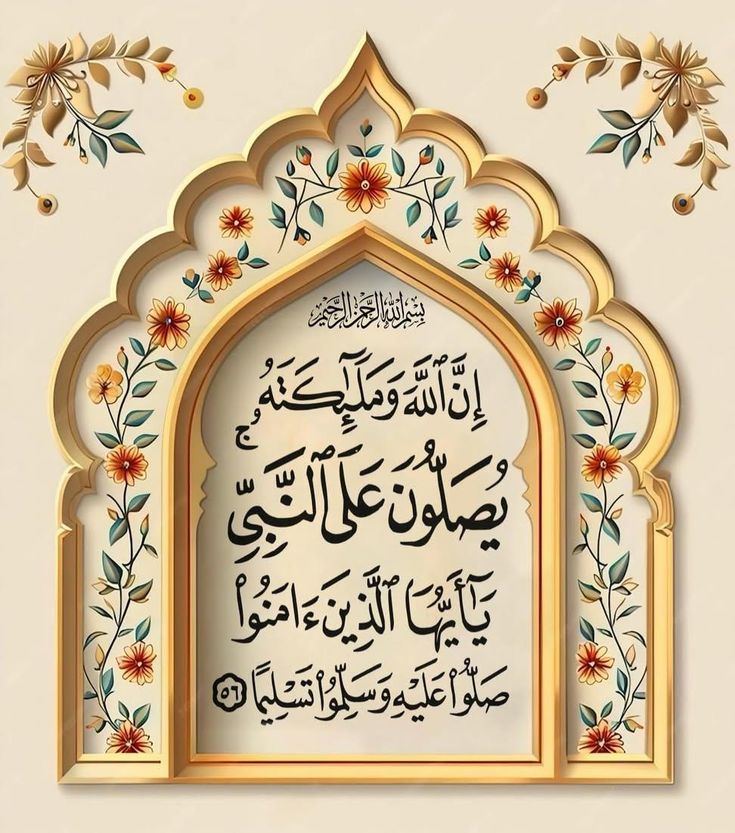 بِسْمِ اللَّهِ الرَّحْمَٰنِ الرَّحِيمِ
إِنَّ ٱللَّهَ وَمَلَٰٓئِكَتَهُۥ
يُصَلُّونَ عَلَى ٱلنَّبِىِّ ۚ
يَٰٓأَيُّهَا ٱلَّذِينَ ءَامَنُوا۟
صَلُّوا۟ عَلَيْهِ وَسَلِّمُوا۟ تَسْلِيمًا ٥٦